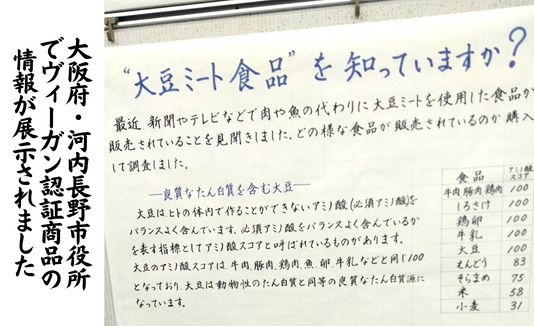 大阪府・河内長野市役所
でヴィーガン認証商品の
情報が展示されました
"大豆ミート食品"を知っていますか?
最近 新聞やテレビなどで肉や魚の代わりに大豆ミートを使用した食品が
販売されていることを見聞きしました。どの様な食品が販売されているのか購入
して調査しました。
―良質なたん白質を含む大豆―
大豆はヒトの体内で作ることができないアミノ酸(必須アミノ酸)を
バランスよく含んでいます。必須アミノ酸をバランスよく含んでいるか
を表す指標としてアミノ酸スコアと呼ばれているものがあります。
大豆のアミノ酸スコアは、牛肉、豚肉、鶏肉、魚、卵、牛乳などと同じ100
となっており、大豆は動物性のたん白質と同等の良質なたん白質源に
なっています。
食品 アミノ酸スコア
牛肉 豚肉 鶏肉 100
しろさけ 100
鶏卵 100
牛乳 100
大豆 100
えんどう 83
そらまめ 75
米 58
小麦 31